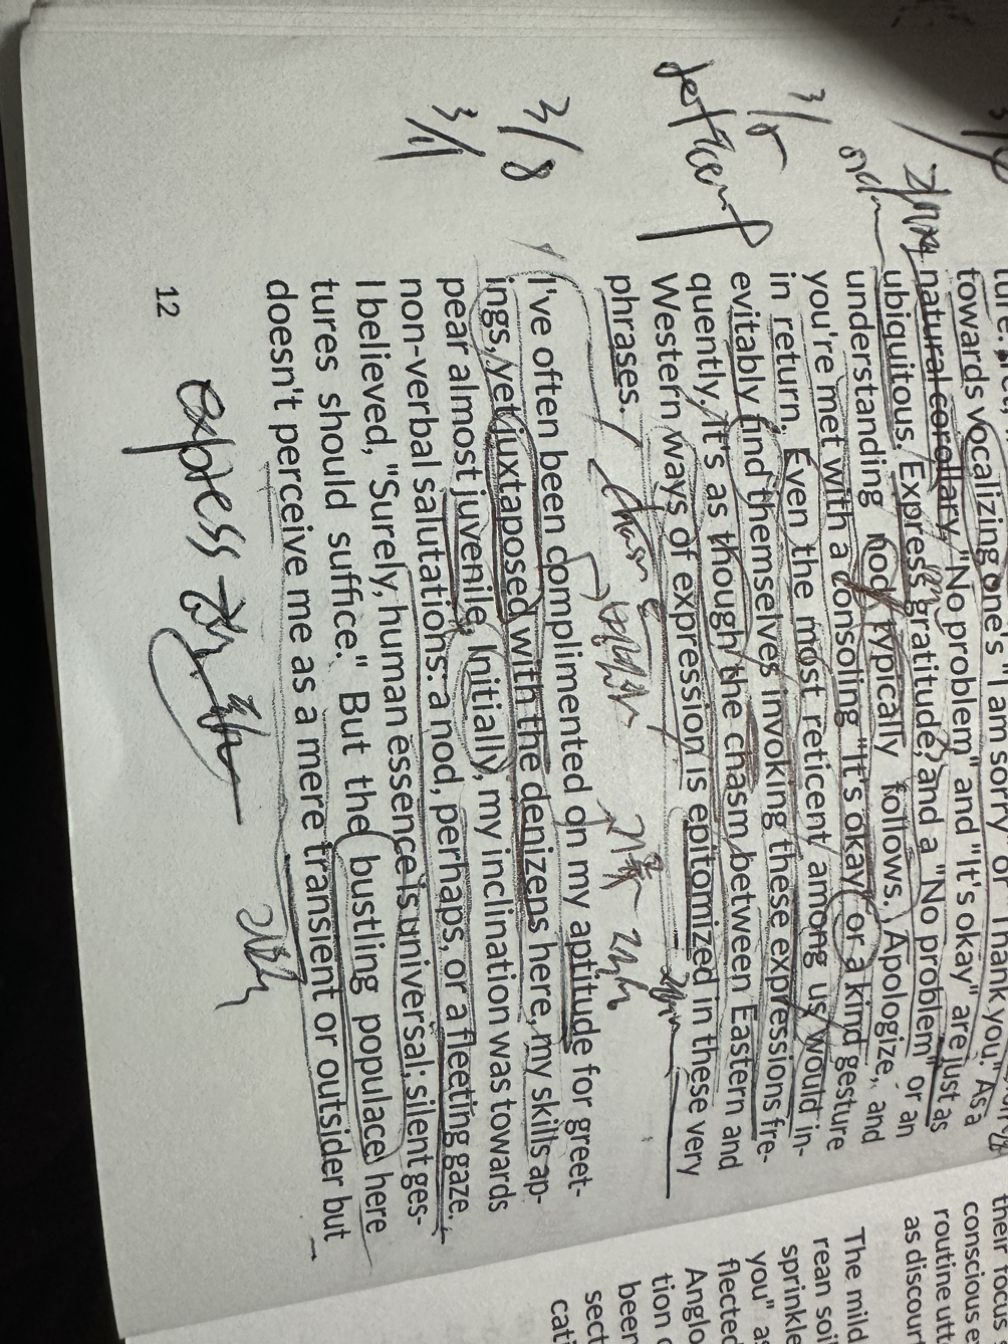 towards vocalizing one's "I am sorry" or "Thank you." As a
natural corollary, "No problem" and "It's okay" are just as
ubiquitous. Express gratitude? and a "No problem" or an
understanding nod typically follows. Apologize, and
you're met with a consoling "It's okay" or a kind gesture
in return. Even the most reticent among us would in-
evitably find themselves invoking these expressions fre-
quently. It's as though the chasm between Eastern and
Western ways of expression is epitomized in these very
phrases.
I've often been complimented on my aptitude for greet-
ings, yet juxtaposed with the denizens here, my skills ap-
pear almost juvenile. Initially, my inclination was towards
non-verbal salutations: a nod, perhaps, or a fleeting gaze.
I believed, "Surely, human essence is universal; silent ges-
tures should suffice." But the bustling populace here
doesn't perceive me as a mere transient or outsider but
12
3/5
3/8
3/11
express
their focus
conscious e
routine utt
as discour
The mild
rean soil
sprinkle
you" as
flected
Anglo
tion c
been
sect
cati